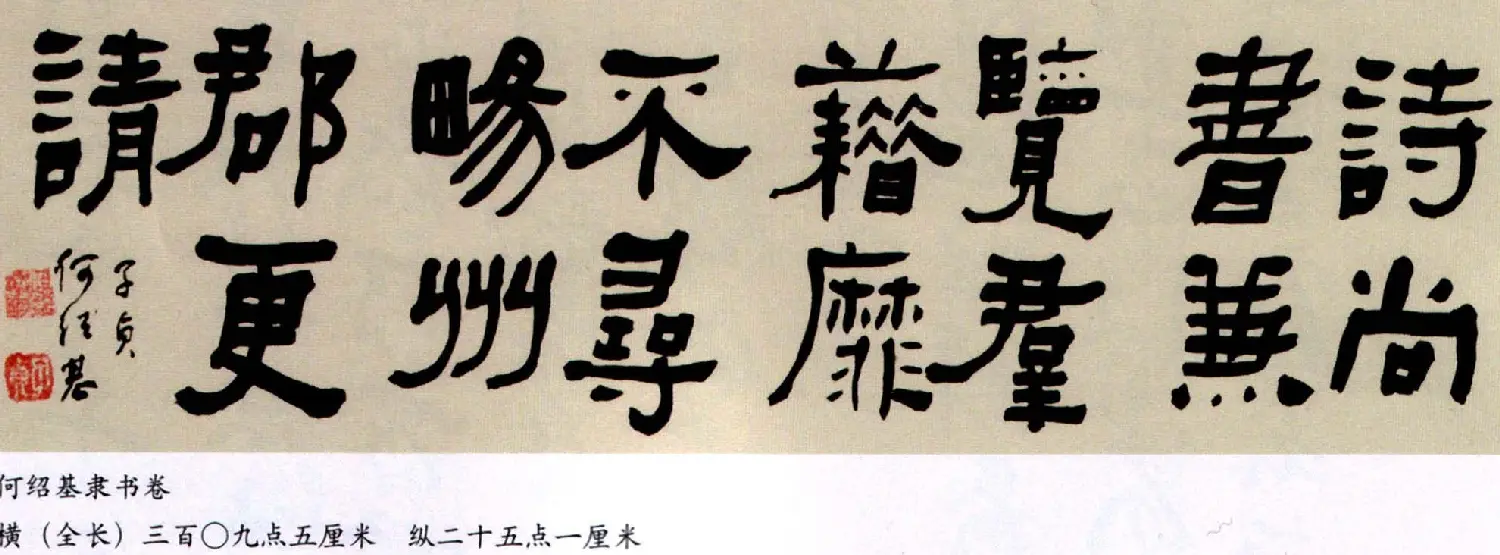 詩尚
書兼
覽羣
藉靡
不尋
暢州
郡更
請
子貞
何紹基
何绍基隶书卷
横（全长）三百〇九点五厘米　纵二十五点一厘米